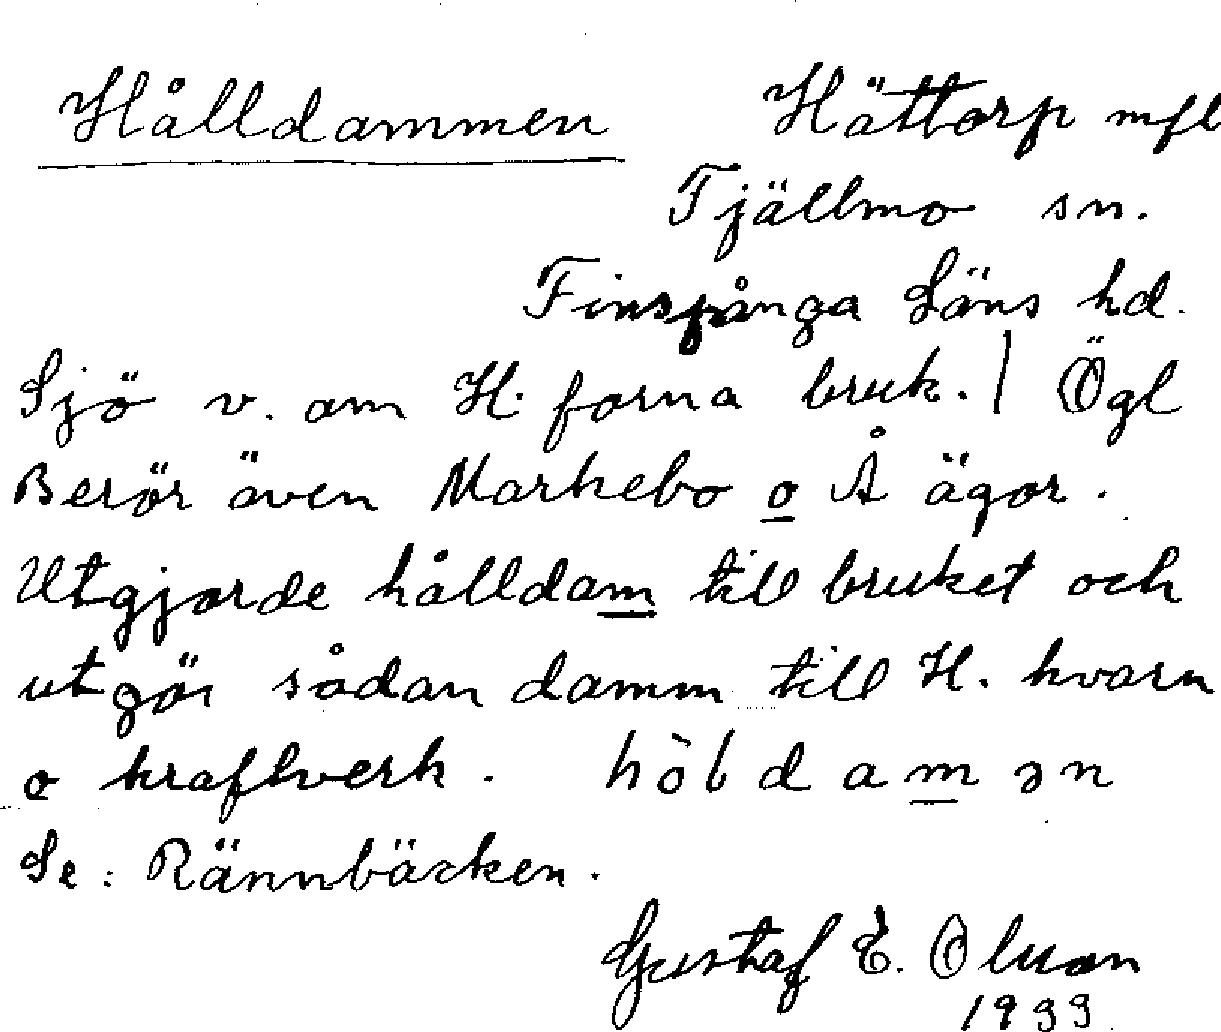 Hålldammen Hättorp mfl
Tjällmo sn.
Finspånga Läns hd.
Sjö v. om H. forna bruk. | Ögl
Berör även Markebo o Å ägor.
Utgjorde hålldam till bruket och
utgör sådan damm till H. kvarn
o kraftverk. hòldamən
Se: Rännbäcken.
Gustaf E. Olson
1933